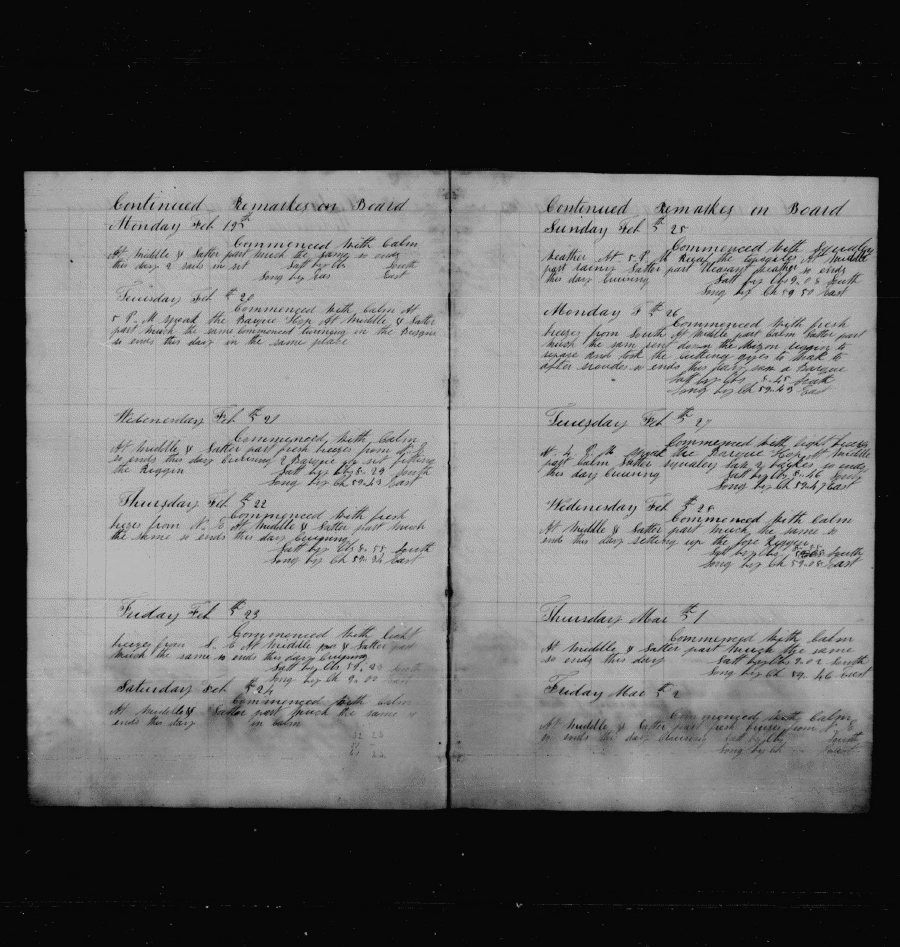 Continued Remarkes on Board
Monday Feb 19th
Commenced With Calm
At Middle & Latter part much the same so ends
this day 2 sails in set Latt by Obs South
Long by East
Teuesday Feb th 20
Commenced With Calm At
5 P. M speak the Barque Hope At Middle & Latter
part much the same Commenced in the
so ends this day in the same place
Wedenesday Feb th 21
Commenced With Calm
At Middle & Latter part fresh breezes from N. E
so ends this day Cruising 2 Barques up set fitting
the Riggin Latt by Obs 8-29 South
Long by Ch 59-43 East
Thursday Feb th 22
Commenced With fresh
bezes from N. E At Middle & Latter part much
the same so ends this day Cruiging
Latt by Obs 8-55 South
Long by Ch 59-34 East
Friday Feb th 23
Commenced With Light
beezes from S. E At Middle part & Latter part
much the same so ends this day Cruiging
Latt by Obs South
Long by Ch 9-00 East
Saturday Feb th 24
Commenced With Calm
At Middle & Latter part much the same so
ends this day in calm
Continued Remarkes on Board
Sunday Feb th 25
Commenced With Squaley
Weather At 5 P. M the topsails At Middle
part rainy Latter part Pleasant Weather so ends
this day Cruising Latt by Obs 9-03 South
Long by Ch 59-50 East
Monday F th 26
Commenced With fresh
beezes from South At Middle part Calm Latter part
much the sam sent down the Mizon riggin to
repare and took the Cutting to
after so ends this day saw a Barque
Latt by Obs 8-45 South
Long by Ch 59-49 East
Teuesday Feb th 27
Commenced With light breeze
N. E. speak the Barque Hope At Middle
part Calm Latter squaley saw 2 so ends
this day Cruising Latt by Obs 8-46 South
Long by Ch 59-47 East
Wednesday Feb th 28
Commenced With Calm
At Middle & Latter part much the same so
ends this day setting up the fore Riggen
Latt by Obs South
Long by Ch 59-08 East
Thursday Mar th 1
Commenced With Calm
At Middle & Latter part much the same
so ends this day Latt by Obs 9-02 South
Long by Ch 59-46 East
Friday Mar th 2
Commenced With Calm
At Middle & Latter part fresh breezes from S. E
so ends this day Cruising Latt by Obs South
Long by Ch